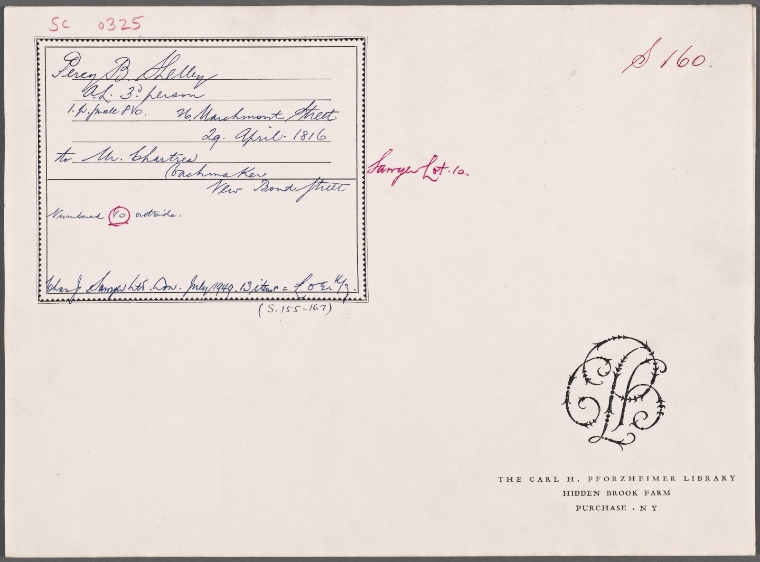 SC 0325
S 160.
Percy B. Shelley
AL. 3d. person
1. p. small 8vo. 26 Marchmont Street
29. April. 1816
to Mr. Chartres
Coachmaker
New Bond Street
Sawyer Lot. 10.
Numbered 10 outside.
Chas J Sawyer Ltd. Lon. July 1949. 13 items =
(S. 155-167)
THE CARL H. PFORZHEIMER LIBRARY
HIDDEN BROOK FARM
PURCHASE . NY